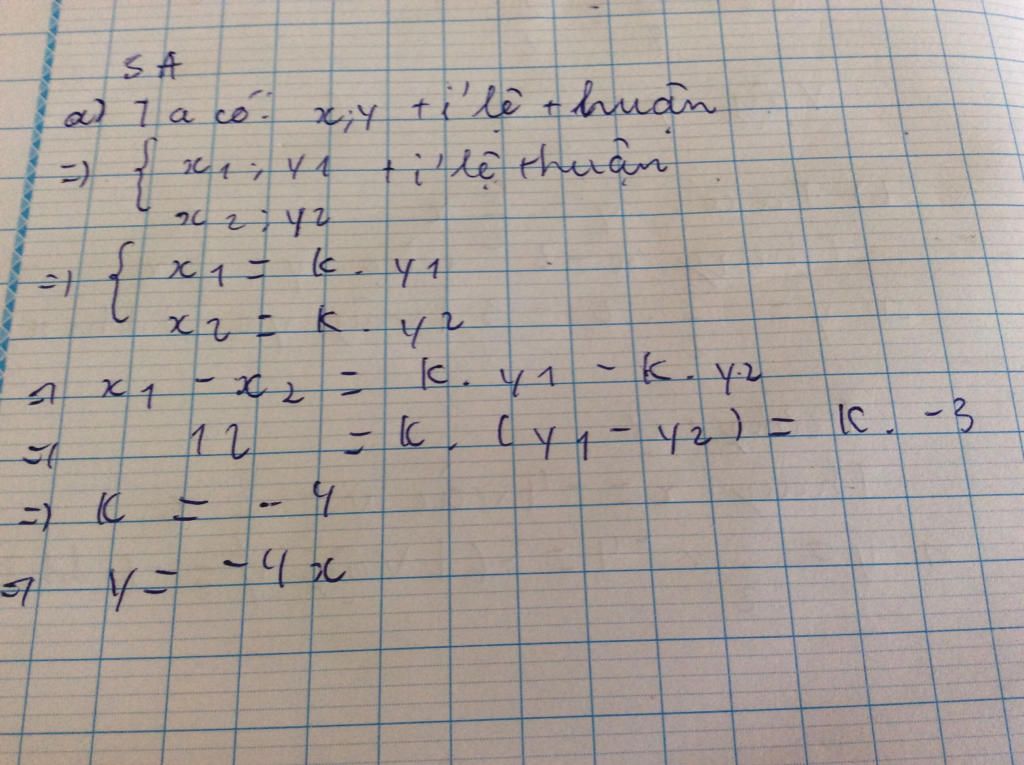 5A
a) Ta có: x; y tỉ lệ thuận
=> { x1; y1 tỉ lệ thuận
x2; y2
=> { x1 = k. y1
x2 = k. y2
=> x1 - x2 = k. y1 - k. y2
=> 12 = k. (y1 - y2) = k. -3
=> k = -4
=> y = -4x